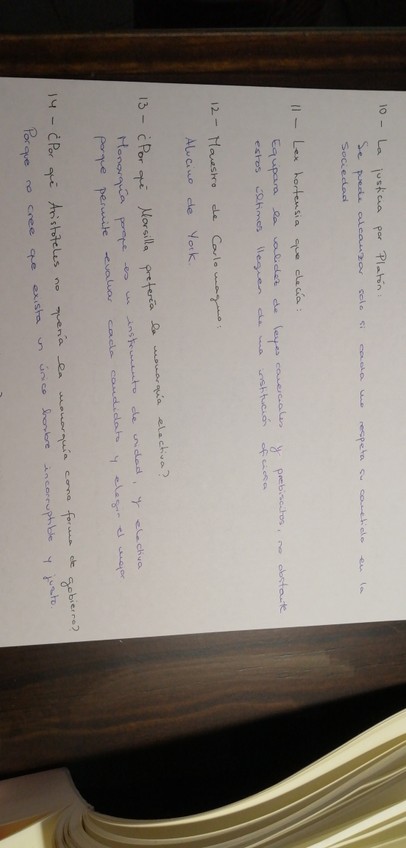 10 - La justicia por Platón:
Se puede alcanzar solo si cada uno respeta su cometido en la
sociedad
11 - Lex hortensia que decía:
Equipara la validez de leyes comiciales y plebiscitos, no obstante
estos últimos lleguen de una institución oficiosa
12 - Maestro de Carlomagno:
Alucino de York
13 - ¿Por qué Marsilla prefería la monarquía electiva?
Monarquía porque es un instrumento de unidad, y electiva
porque permite evaluar cada candidato y elegir el mejor.
14 - ¿Por qué Aristóteles no quería la monarquía como forma de gobierno?
Porque no cree que exista un único hombre incorruptible y justo.